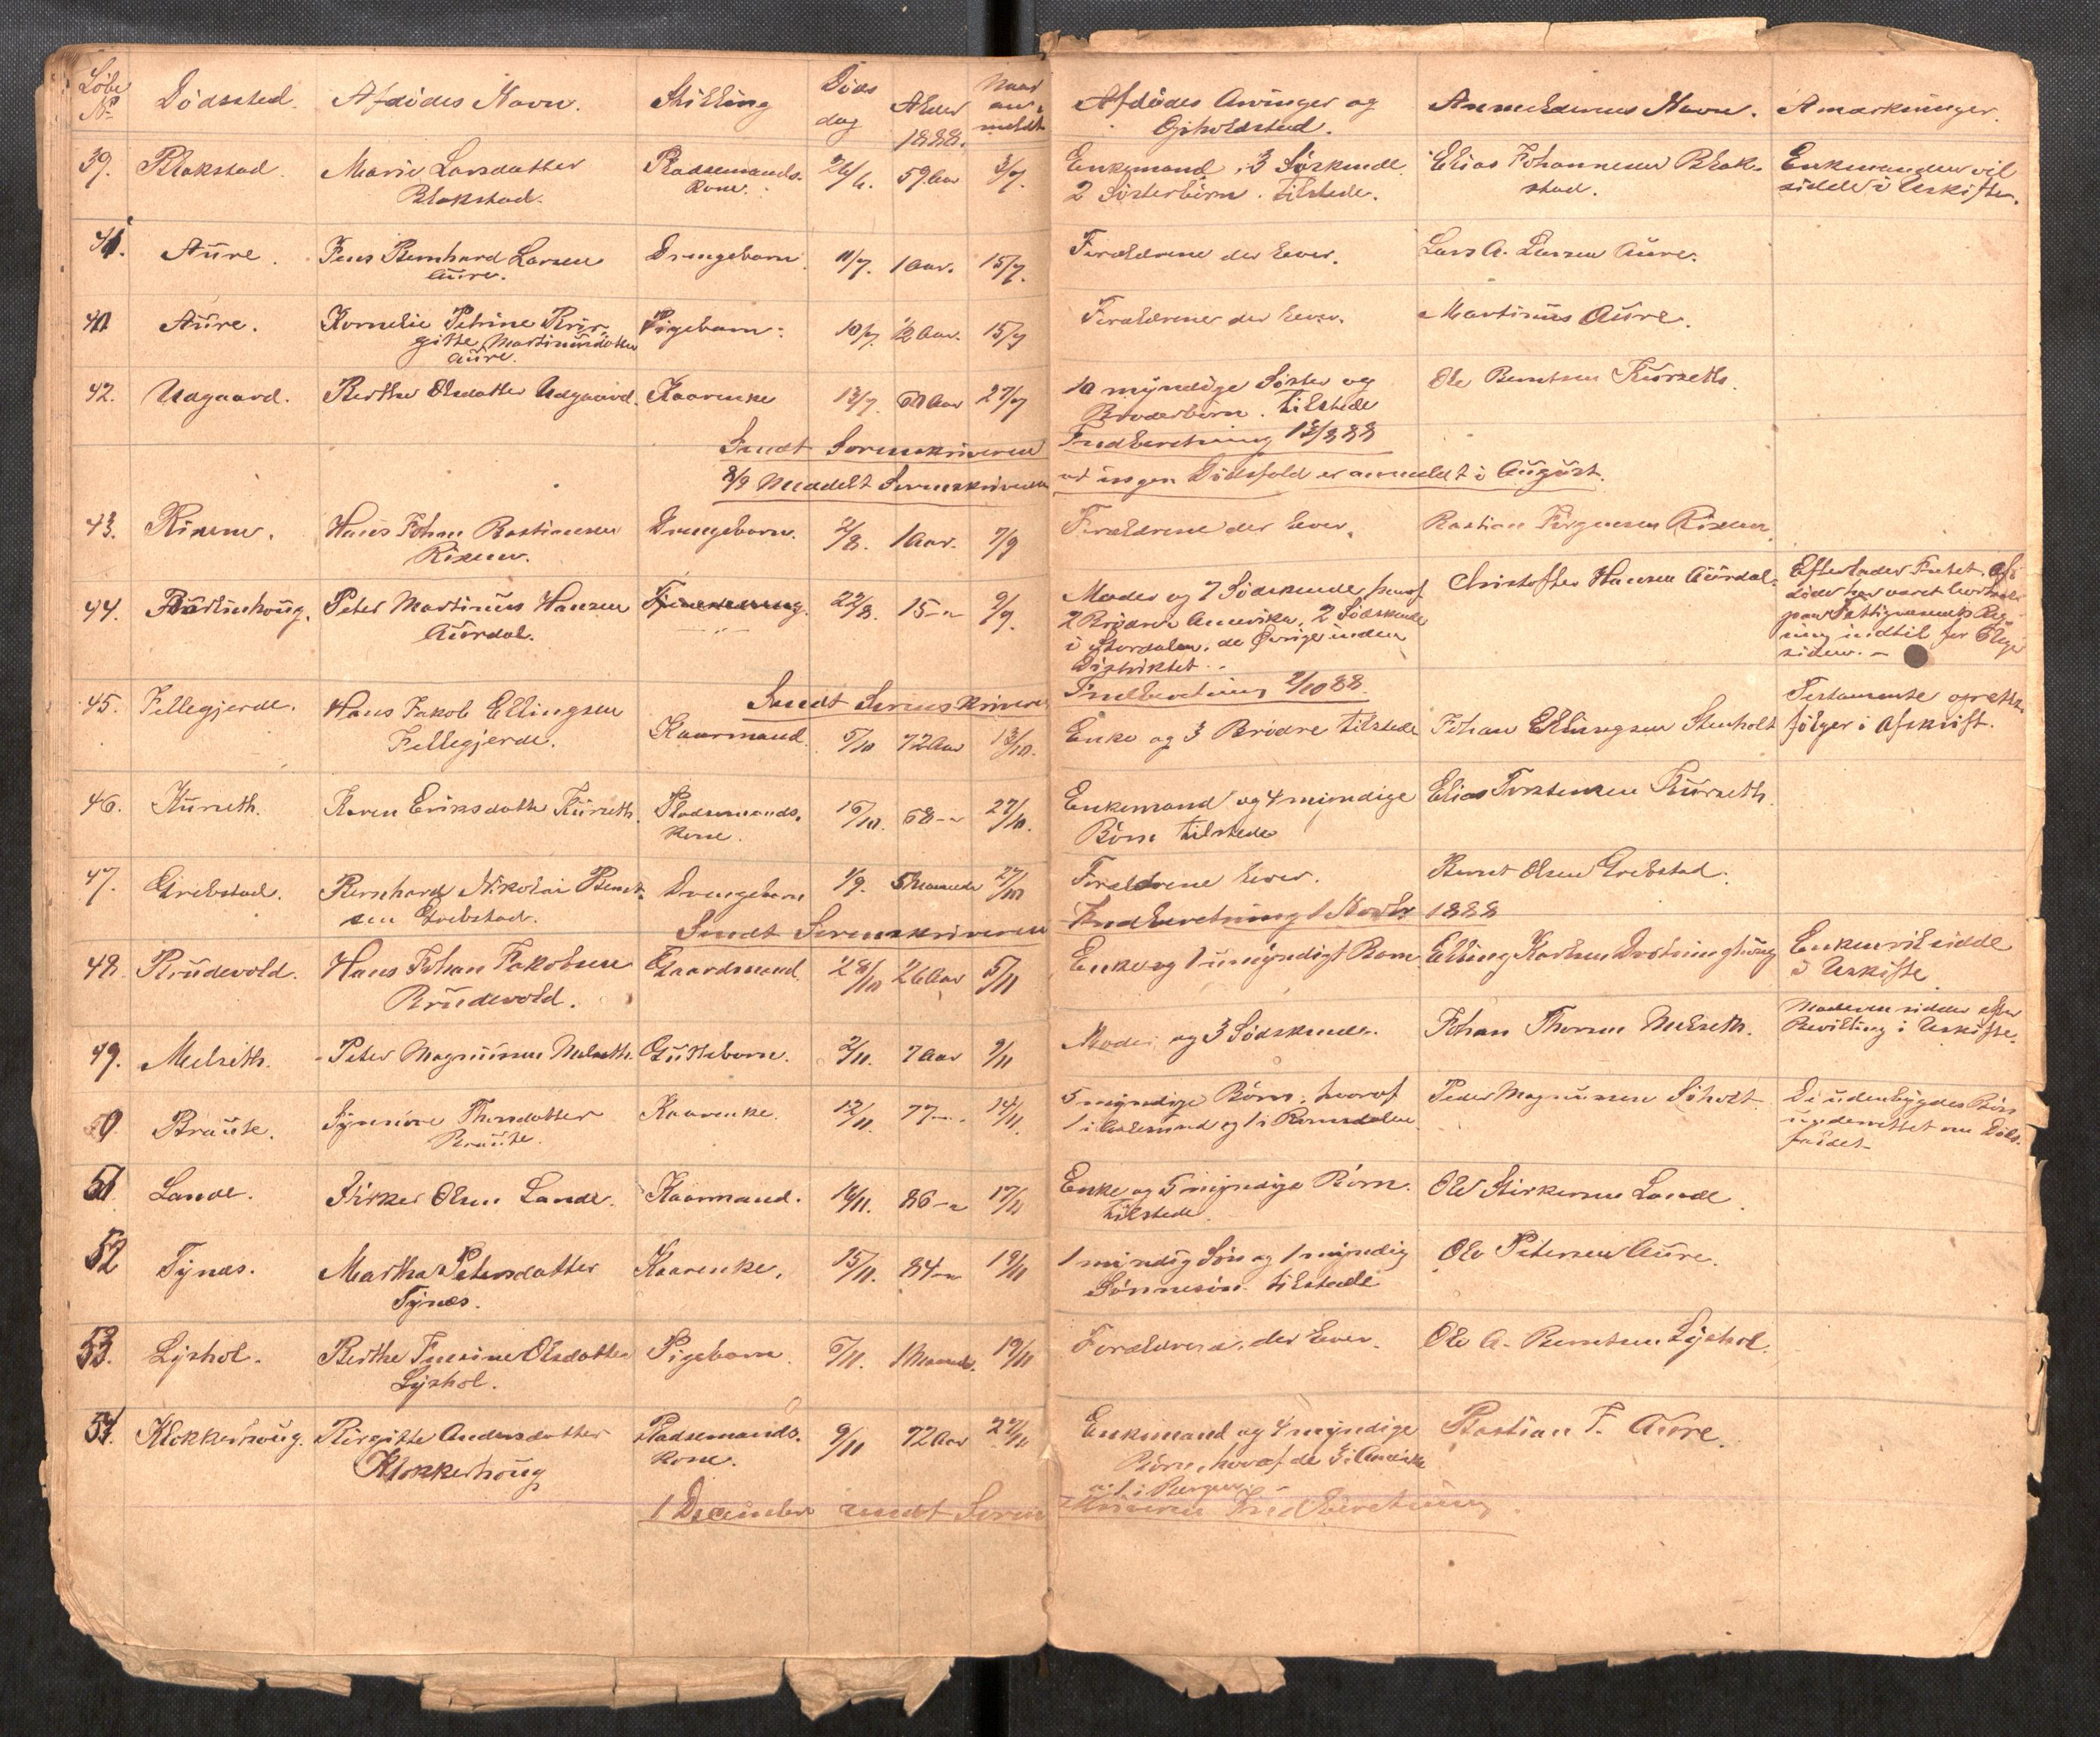 Löbe № Dödssted. Afdödes Navn. Stilling Döds dag Alder 1888. Naar anmeldt Afdödes Arvinger og Opholdsted. Anmelderens Navn. Anmærkninger.
39. Blakstad. Marie Larsdatter Pladsemands- 26/6. 59 Aar 3/7. Enkemand, 3 Söskende Elias Johannesen Blak- Enkemanden vil
Blakstad. kone. 2 Sösterbörn. tilstede. stad. sidde i Uskifte.
41. Aure. Jens Bernhard Larsen Drengebarn 11/7. 1 Aar. 15/7. Forældrene der lever. Lars A. Larsen Aure.
Aure.
40 Aure. Kornelie Petrine Bir- Pigebarn. 10/7. ½ Aar. 15/7 Forældrene der lever. Martinus Aure.
gitte Martinusdatter
Aure.
42. Udgaard. Berthe Olsdatter Udgaard. Kaarenke 13/7. Aar 27/7 10 myndige Söster og Ole Berntsen Kurseth.
Broderbörn. tilstede
Sendt Sorenskriveren Indberetning 1888
3/9 Meddelt Sorenskriveren at ingen Dödsfald er anmeldt i August.
43. Risem. Hans Johan Bastiansen Drengebarn. 2/8. 1 Aar. 7/9 Forældrene der lever. Bastian Jörgensen
44. Peter Martinus Hansen 22/8. 15 - 9/9. Moder og 7 Södskende, hvoraf Christoffer Hansen Aurdal. Efterlader Intet. Af-
Aurdal. 2 Brödre Amerika, 2 Södskende
i Stordalen, de Övrige inden paa Fattigvæsenets Reg-
Distriktet ning indtil for
siden. -
Sendt Sorenskriveren Indberetning 2/10 88.
45. Fellegjerde. Hans Jakob Ellingsen Kaarmand. 5/10 72 Aar 13/10. Enke og 3 Brödre tilstede Johan Ellingsen Stenholt Testamente oprettet.
Fellegjerde. fölger i Afskrift.
46. Kurseth. Karen Eriksdatter Kurseth. Pladsemands- 16/10. 68 - 27/10. Enkemand og 4 myndige Elias Torstensen Kurseth.
kone. Börn tilstede
47. Grebstad. Bernhard Nikolai Bernt- Drengebarn 1/9. 5 Maaneder 27/10 Forældrene lever. Bernt Olsen Grebstad.
sen Grebstad.
Sendt Sorenskriveren Indberetning 1 Novbr 1888
48. Brudevold. Hans Johan Jakobsen Gaardmand. 28/10 26 Aar 5/11 Enke og 1 umyndigt Barn. Elling Karlsen Drotninghoug Enken vil sidde
Brudevold. i Uskifte
49. Melseth. Peter Magnusen Melseth. Guttebarn. 2/11. 7 Aar 9/11 Moder og 3 Södskende. Johan Thorsen Melseth. Moderen sidder efter
Bevilling i Uskifte.
50. Braute. Synnöve Thorsdatter Kaarenke. 12/11. 77 - 14/11. 5 myndige Börn, hvoraf Peder Magnusen Söholt De udenbygdes Börn
Braute. 1 i Aalesund og 1 i Romsdalen underrettet om Döds-
faldet
51. Lande. Sirker Olsen Lande. Kaarmand. 14/11. 86 - 17/11 Enke og 5 myndige Börn. Ole Sirkersen Lande.
tilstede.
52 Tynes. Martha Petersdatter Kaarenke. 15/11. 84 - 19/11 1 myndig Sön og 1 myndig Ole Petersen Aure.
Tynes. Sönnesön. tilstede
53. Lyshol. Berthe Olsdatter Pigebarn. 5/11. 1 Maaned. 19/11 Forældrene, der lever. Ole A. Berntsen Lyshol.
Lyshol.
54. Klokkerhoug. Birgitte Andersdatter Pladsemands- 9/11 72 Aar 27/11 Enkemand og 4 myndige Bastian J. Aure.
Klokkerhoug kone. Börn, hvoraf de 3 i Amerika
og 1 i Bergen
1 December sendt Sorenskriveren Indberetning.